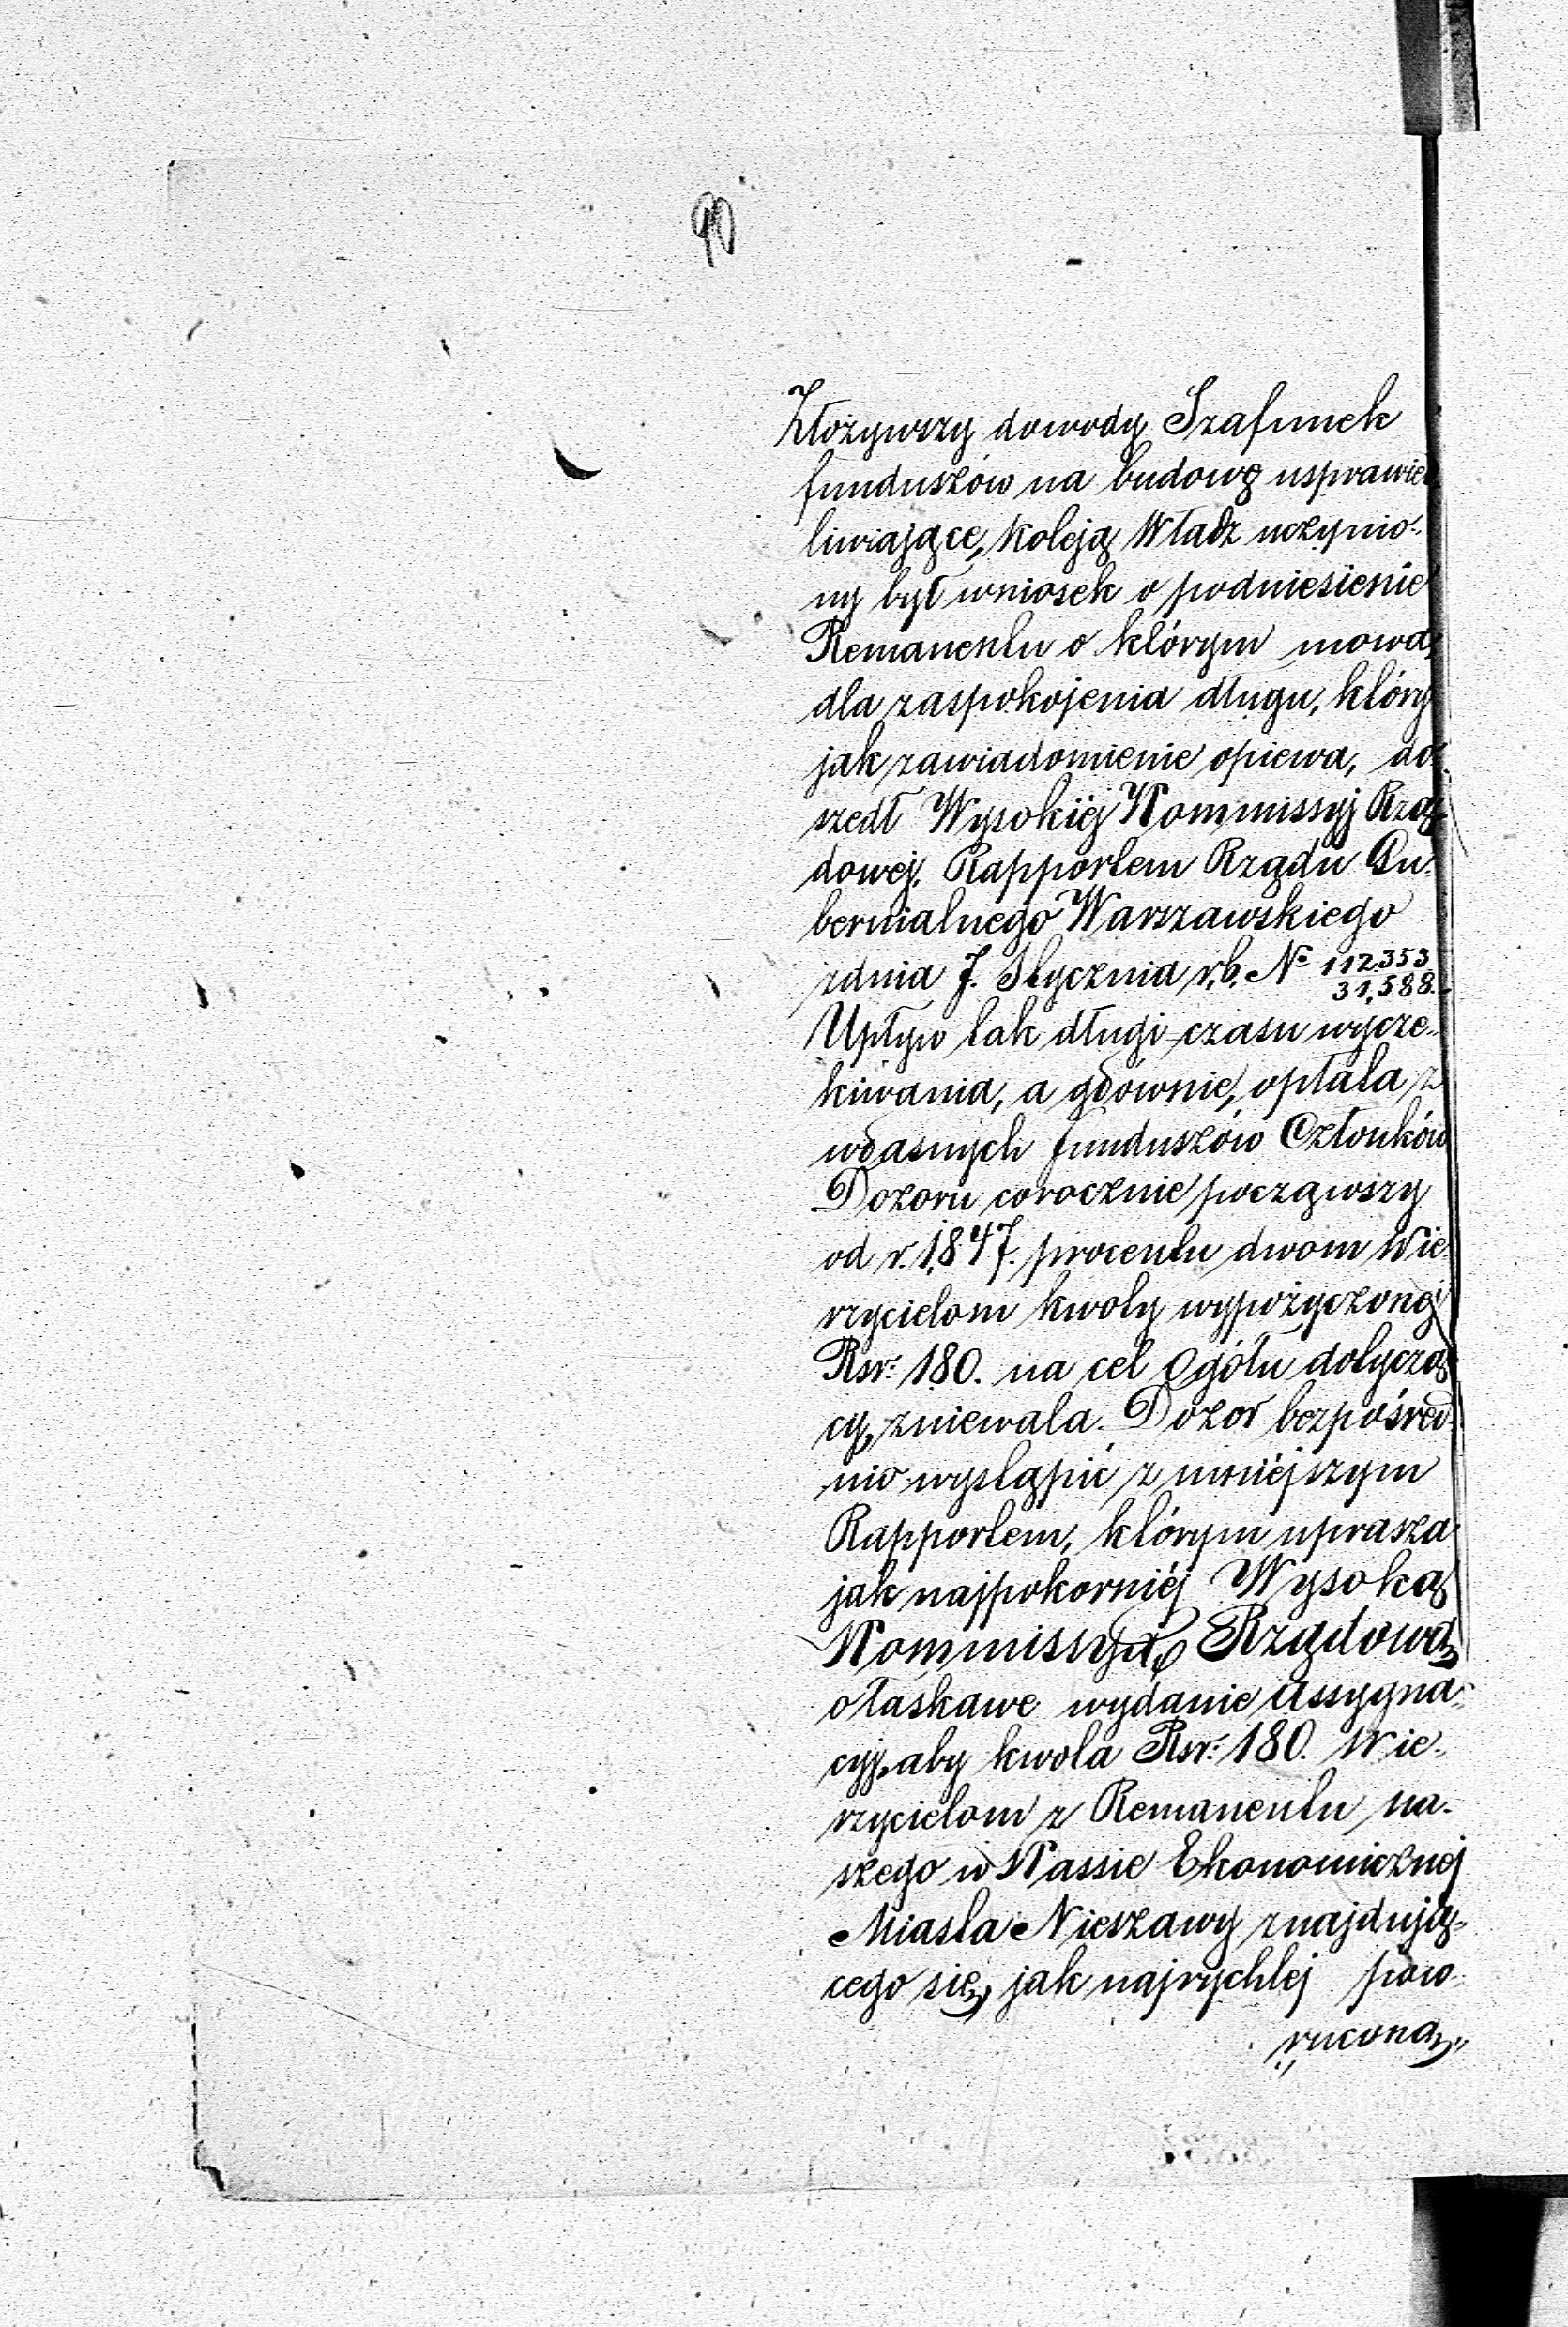 90
Złożywszy dowody Szafunek
funduszów na budowę usprawied
liwiające, koleją Władz uczynio-
ny był wniosek o podniesienie
Remanentu o którym mowa,
dla zaspokojenia długu, który
jak zawiadomienie opiewa, do-
szedł Wysokiéj Kommissyj Rzą-
dowej, Rapportem Rządu Gu-
bernialnego Warszawskiego
zdnia 7. Stycznia r.b. No 112,353
31,588.-
Upływ tak długi czasu wycze-
kiwania, a głównie, opłata z
własnych funduszów Członków
Dozoru corocznie począwszy
od r. 1847. procentu dwom Wie-
rzycielom kwoty wypożyczonéj
Rsr: 180. na cel Ogółu dotyczą-
cy, zniewala Dozór bezpośred-
nio wystąpić z niniéjszym
Rapportem, którym uprasza
jak najpokorniéj Wysoką
Kommissyą Rządową,
o łaskawe wydanie assygna-
cyj, aby kwota Rsr: 180. Wie-
rzycielom z Remanentu na-
szego w Kassie Ekonomicznej
Miasta Nieszawy znajdują-
cego się, jak najrychlej pow-
rucona,,